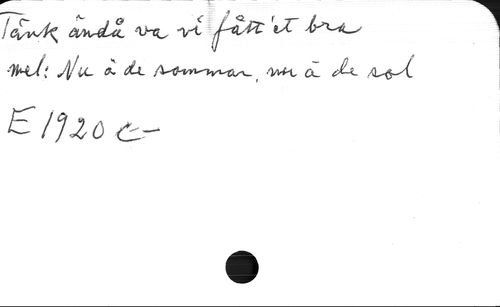 Tänk ändå va vi fått'et bra
mel: Nu ä de sommar, nu ä de sol
E 1920 c